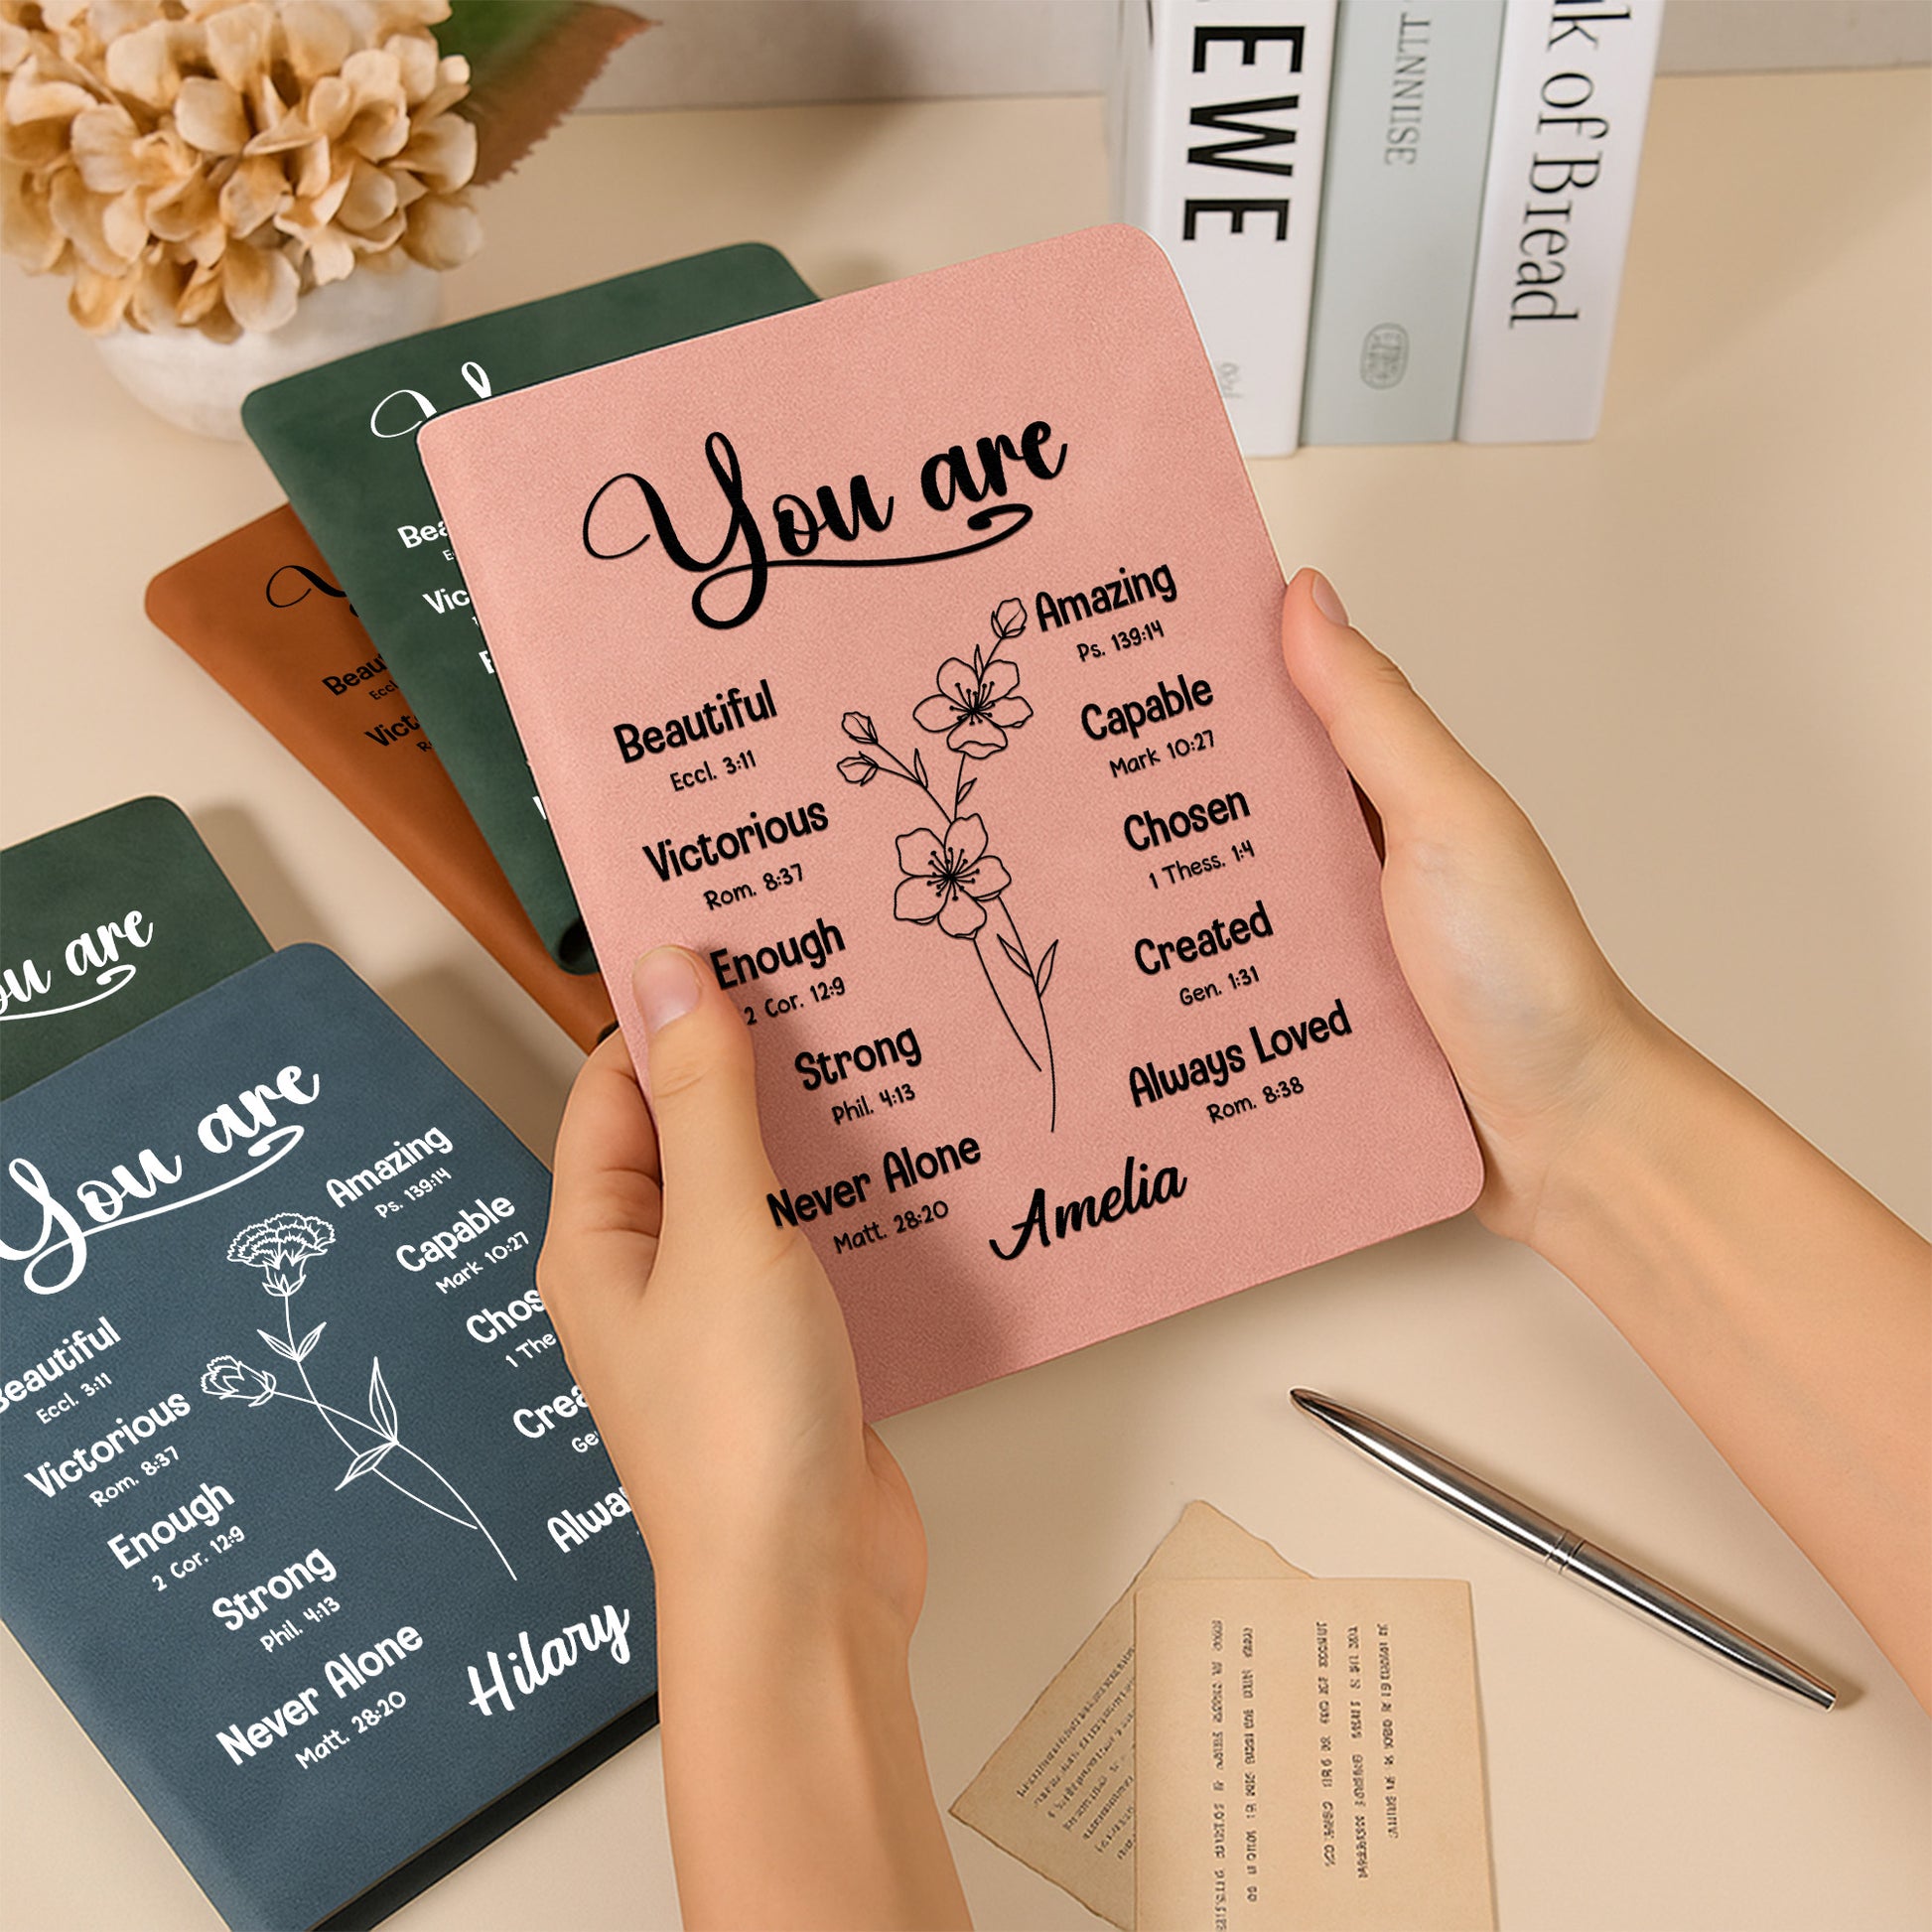 EWE
TTINNISE
k of Bread
You are
Amazing
Ps. 139:14
Beautiful
Eccl. 3:11
Capable
Mark 10:27
Victorious
Rom. 8:37
Chosen
1 Thess. 1:4
Enough
2 Cor. 12:9
Created
Gen. 1:31
Strong
Phil. 4:13
Always Loved
Rom. 8:38
Never Alone
Matt. 28:20
Amelia
Bea
Vic
Beau
Eccl
Vict
ou are
You are
Amazing
Ps. 139:14
Capable
Mark 10:27
Beautiful
Eccl. 3:11
Chos
1 The
Victorious
Rom. 8:37
Crea
Ge
Enough
2 Cor. 12:9
Alwa
Strong
Phil. 4:13
Never Alone
Matt. 28:20
Hilary